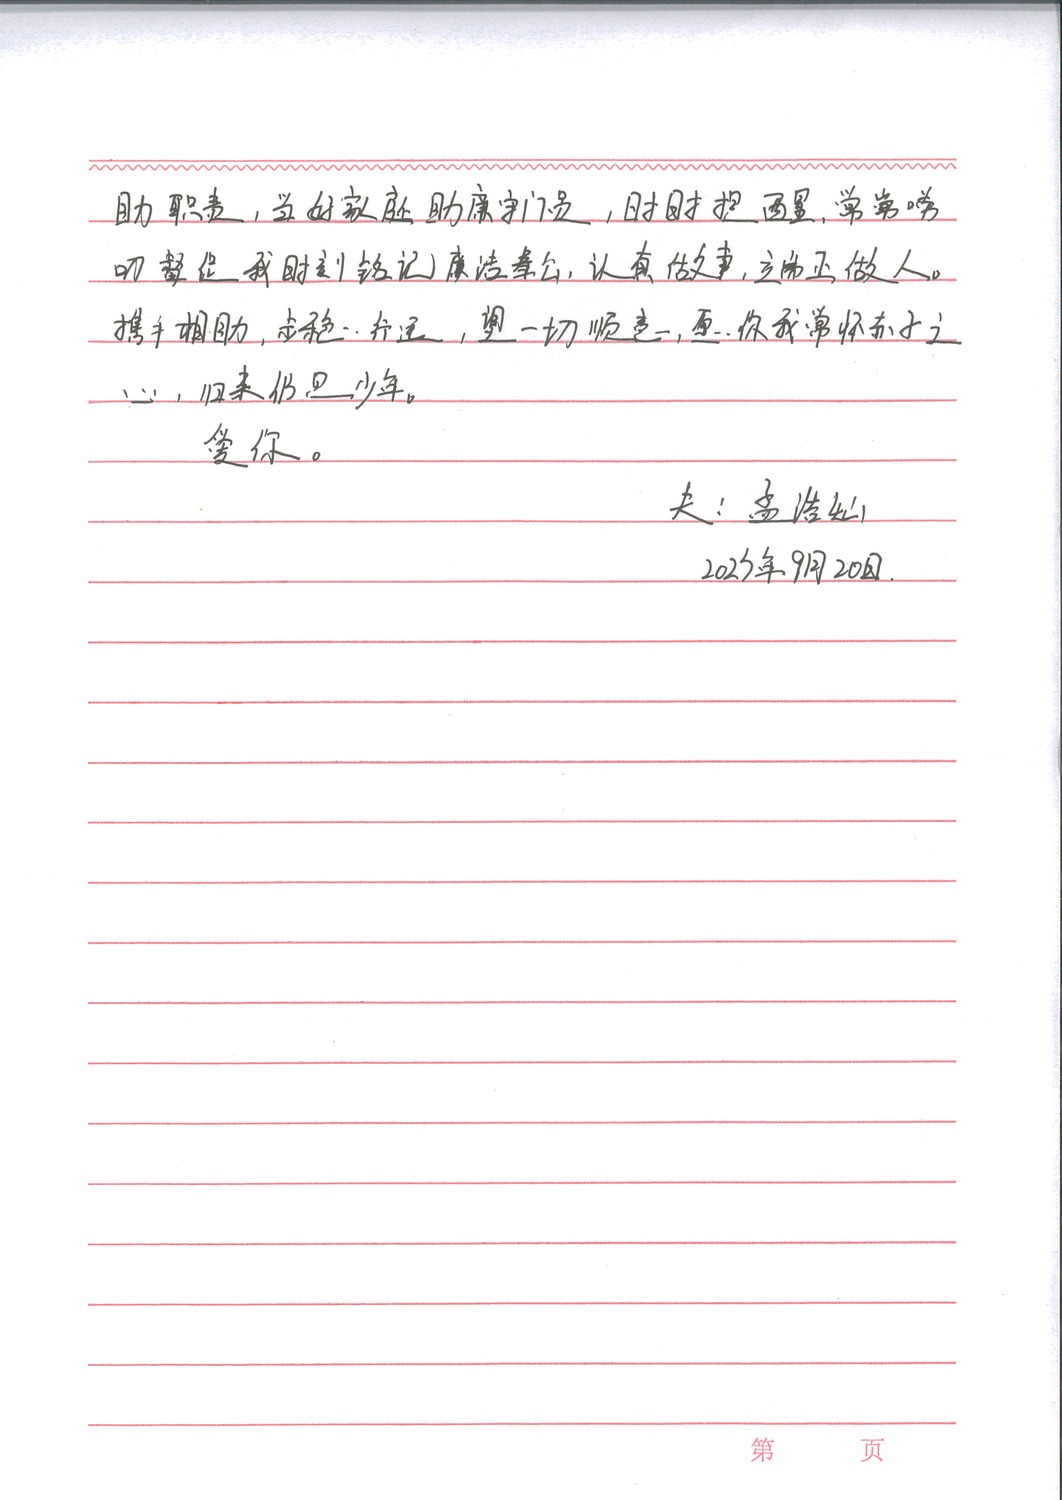 助职责，当好家庭助廉守门员，时时提西星，常常唠
叨督促我时刻铭记廉洁奉公，认真做事，立端正做人。
携手相助，步稳行远，望一切顺意，愿你我常怀赤子之
心，归来仍是少年。
爱你。
夫：孟浩灿
2023年9月20日.
第 页